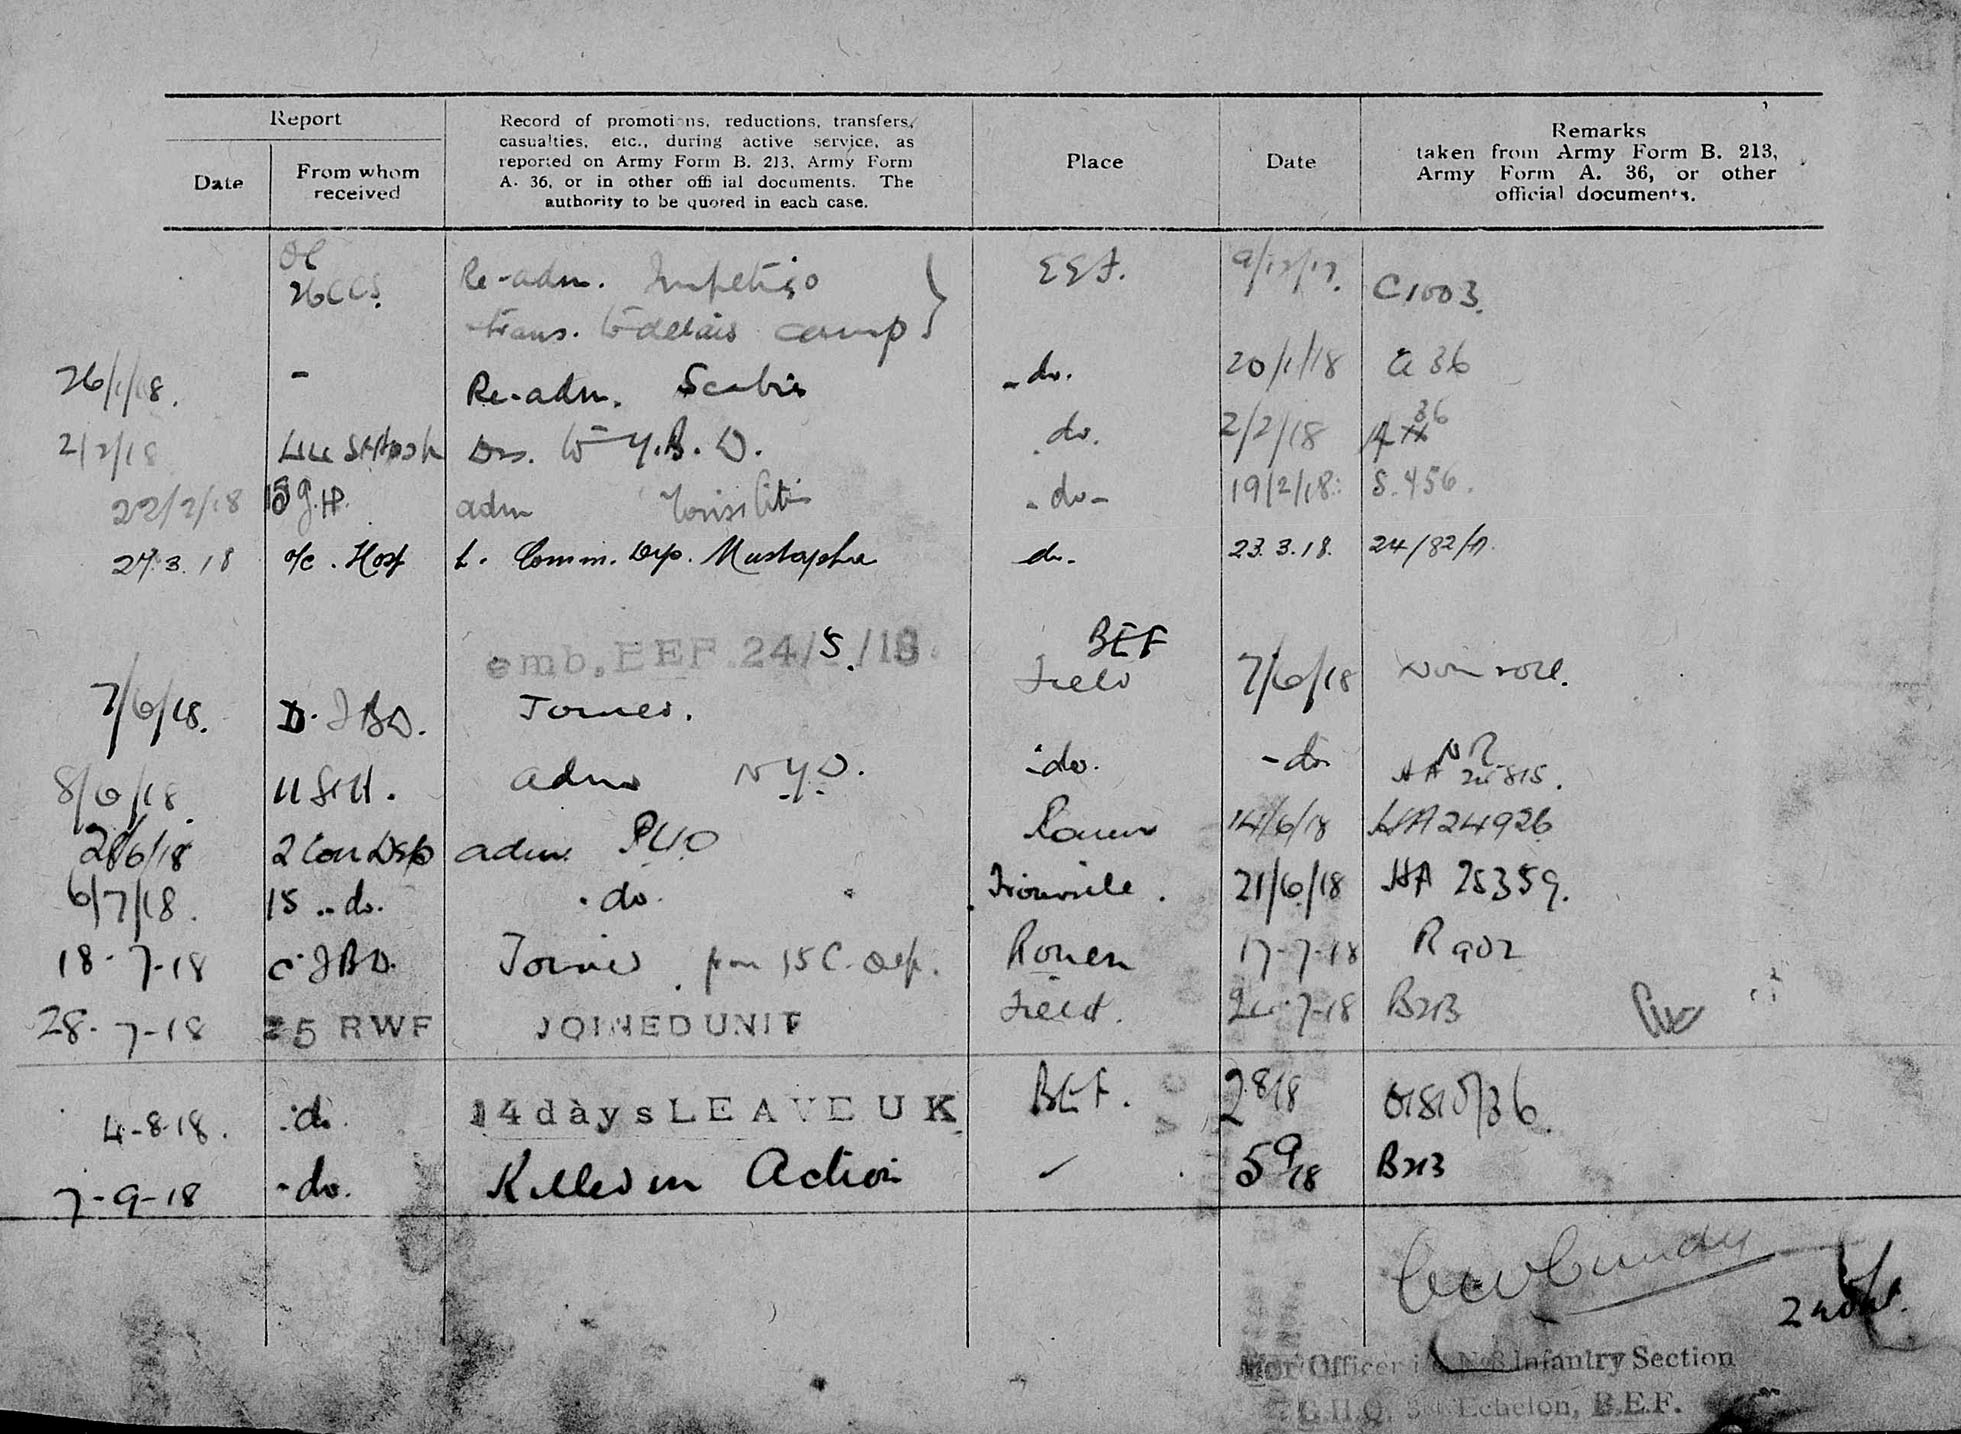 Report
Date
From whom
received
Record of promotions, reductions, transfers,
casualties, etc., during active service, as
reported on Army Form B. 213, Army Form
A. 36, or in other offi ial documents. The
authority to be quoted in each case.
Place
Date
Remarks
taken from Army Form B. 213,
Army Form A. 36, or other
official documents.
OC
26 CCS. Re-adm. Impetigo EEF. 9/12/17. C1003.
trans. to details camp
26/1/18. - Re-adm. Scabies - do. 20/1/18 A 36
2/2/18 Dis. to Y.B.D. do. 2/2/18 36
22/2/18 G.H. adm Tonsilitis - do - 19/2/18. S.456.
27.3.18 O/C. Hosp t. Comm. Dep. Mustapha do. 23.3.18. 24/82/A.
emb. EEF 24/5/18. BEF
7/6/18. D. IBD. Joined. Field 7/6/18 Nom roll.
8/6/18 11 S.H. adm N.Y.D. - do. - do NR
28/6/18 2 Con Dep adm PUO Rouen 14/6/18 HA 24926
6/7/18. 15 .. do. . do. Trouville. 21/6/18 HA 25359.
18-7-18 C. IBD. Joined from 15 C. Dep. Rouen 17-7-18 R 902
28-7-18 25 RWF JOINED UNIT Field. -7-18 B213
4-8-18. . do. 14 days LEAVE UK BEF. 2/8/18
7-9-18 - do. Killed in Action 5/9/18 B213
Cundy
for Officer i/c No 3 Infantry Section
G.H.Q. 3rd Echelon, B.E.F.